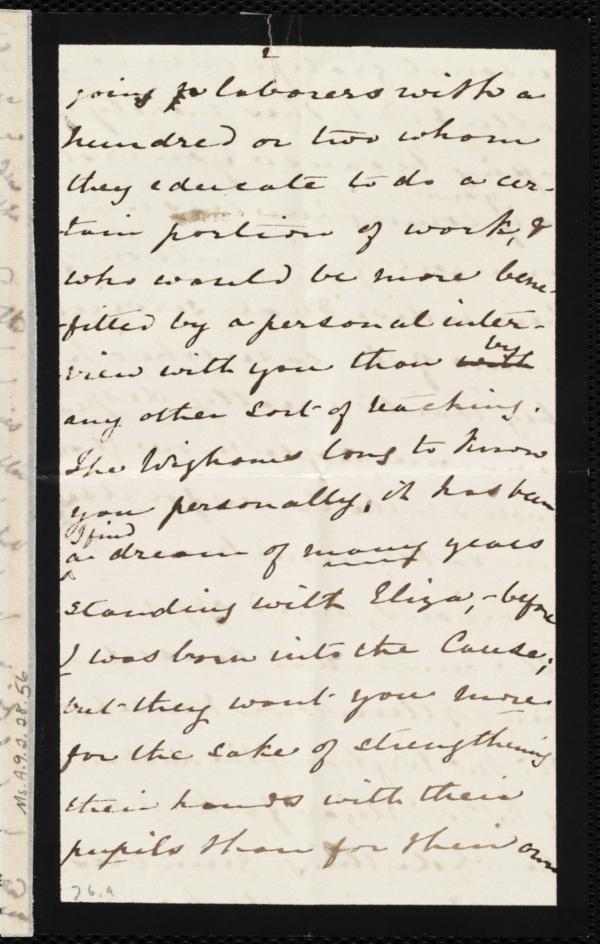 going laborers with a
hundred or two whom
they educate to do a cer-
tain portion of work, &
who would be more bene-
fitted by a personal inter-
view with you than with by
any other sort of teaching.
The Wighams long to know
you personally, it has been
I find
a dream of many years
standing with Eliza, - before
I was born into the Cause;
but they want you more
for the sake of strengthening
their hands with their
pupils than for their own
26.9
Ms.A.9.2.28.56